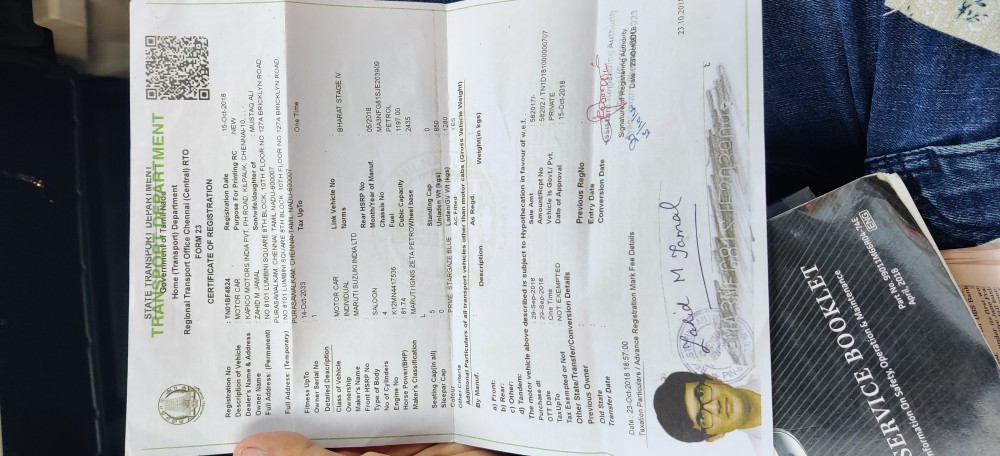 STATE TRANSPORT DEPARTMENT
TRANSPORT DEPARTMENT
Government of Tamilnadu
Home (Transport) Department
Regional Transport Office Chennai (Central) RTO
FORM 23
CERTIFICATE OF REGISTRATION
Registration No : TN01BF4824 Registration Date : 15-Oct-2018
Description of Vehicle : MOTOR CAR Purpose For Printing RC : NEW
Dealer's Name & Address : KAPICO MOTORS INDIA PVT, PH ROAD, KILPAUK, CHENNAI-10
Owner Name : ZAHID M JAMAL Son/wife/daughter of : MUSTAQ ALI
Full Address: (Permanent) : NO 8101 LUMBINI SQUARE 8TH BLOCK, 10TH FLOOR NO 127A BRICKLYN ROAD
PURASAIVAKAM, CHENNAI, TAMIL NADU-600007
Full Address: (Temporary) : NO 8101 LUMBINI SQUARE 8TH BLOCK, 10TH FLOOR NO 127A BRICKLYN ROAD
PURASAIVAKAM, CHENNAI, TAMIL NADU-600007
Fitness UpTo : 14-Oct-2033 Tax UpTo : One Time
Owner Serial No : 1
Detailed Description
Class of Vehicle : MOTOR CAR Link Vehicle No :
Ownership : INDIVIDUAL Norms : BHARAT STAGE IV
Maker's Name : MARUTI SUZUKI INDIA LTD
Front HSRP No : Rear HSRP No :
Type of Body : SALOON Month/Year of Manuf. : 05/2018
No of Cylinders : 4 Chassis No : MA3NFG81SJE203909
Engine No : K12MN4417536 Fuel : PETROL
Horse Power(BHP) : 81.74 Cubic Capacity : 1197.00
Maker's Classification : MARUTI IGNIS ZETA PETROL Wheel base : 2435
Seating Cap(in all) : 5 Standing Cap : 0
Sleeper Cap : 0 Unladen Wt (kgs) : 850
Colour : PRIME STARGAZE BLUE Laden/GV Wt (kgs) : 1280
Other Criteria : AC Fitted : YES
Additional Particulars of all transport vehicles other than motor cabs (Gross Vehicle Weight)
By Manuf. As Regd.
Description Weight(in kgs)
a) Front:
b) Rear:
c) Other:
d) Tandem:
The motor vehicle above described is subject to Hypothecation in favour of w.e.f.
Purchase dt : 29-Sep-2018 Sale Amt : 582017/-
OTT Date : 29-Sep-2018 Amount/Rcpt No : 58202 / TN1D181000000707
TaxUpTo : One Time Vehicle is Govt./ Pvt. : PRIVATE
Tax Exempted or Not : NOT EXEMPTED Date of Approval : 15-Oct-2018
Other State/Transfer/Conversion Details
Previous Owner : Previous RegNo :
Old State : Entry Date :
Transfer Date : Conversion Date :
Date : 23-Oct-2018 18:57:00
Taxation Particulars / Advance Registration Mark Fee Details
Signature of Registering Authority
Zahid M Jamal
SERVICE BOOKLET
Information On Safety, Operation & Maintenance
Part No. 99011M66R00-74E
April, 2018
ENG